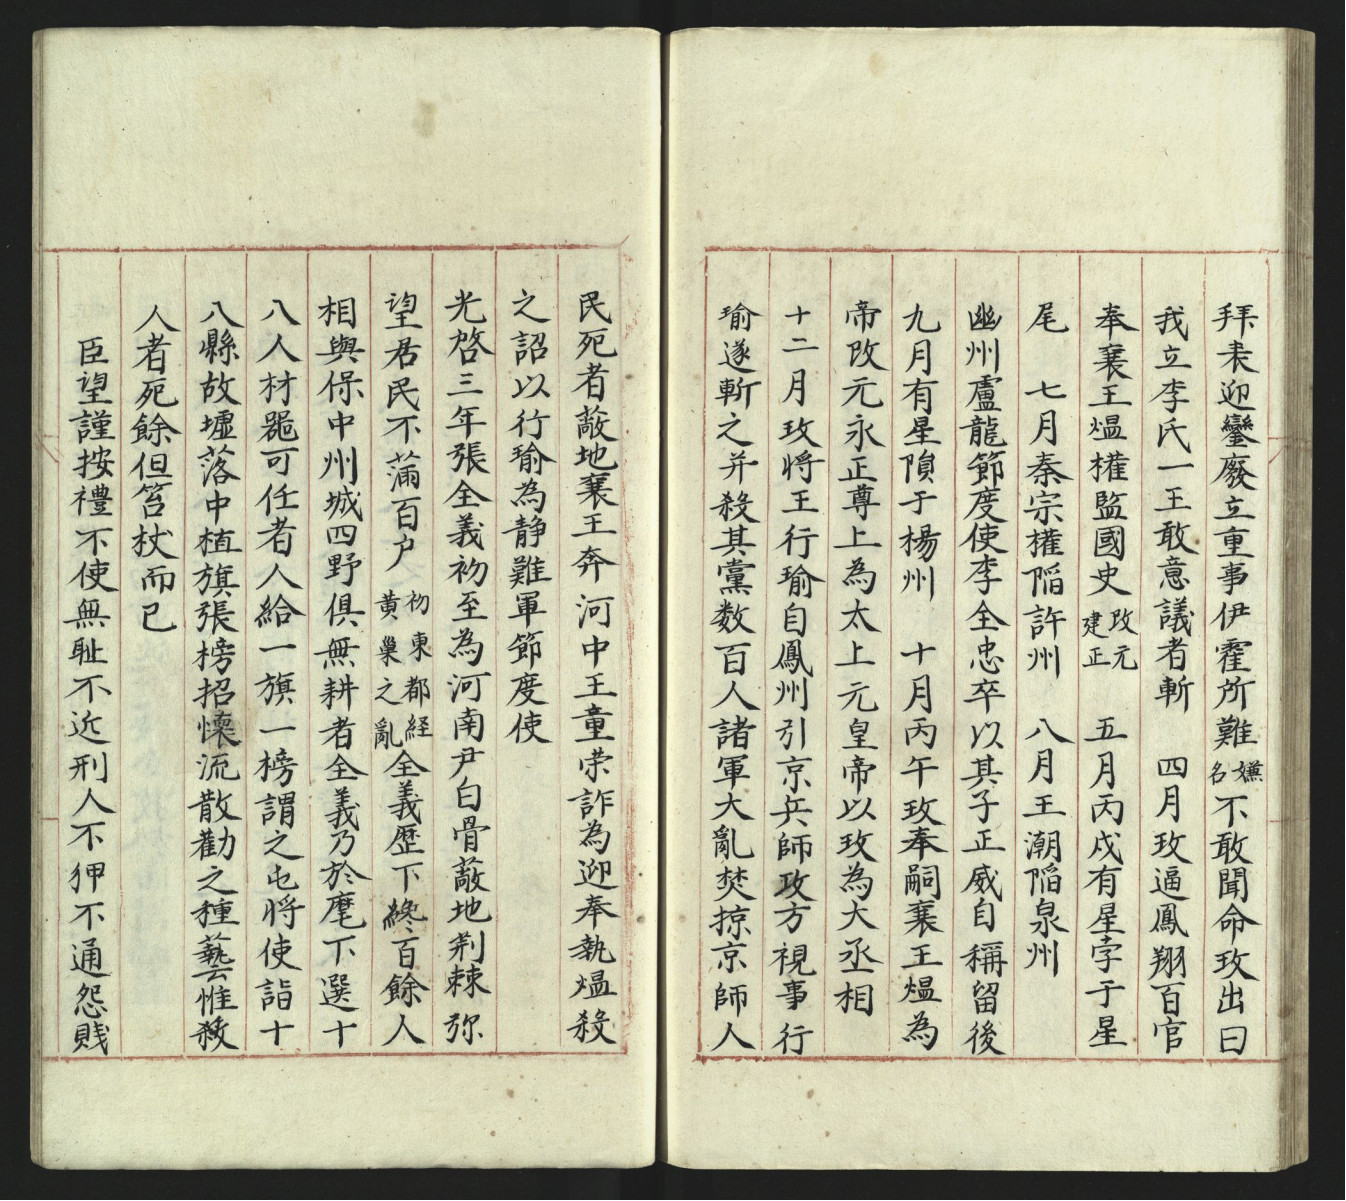 拜表迎鑾廢立重事伊霍所難嬚名不敢聞命玫出曰
我立李氏一王敢意議者斬　四月玫逼鳳翔百官
奉襄王煴權監國史改元建正　五月丙戌有星孛于星
尾　七月秦宗權陷許州　八月王潮陷泉州
幽州盧龍節度使李全忠卒以其子正威自稱留後
九月有星隕于楊州　十月丙午玫奉嗣襄王煴為
帝改元永正尊上為太上元皇帝以玫為大丞相
十二月玫將王行瑜自鳳州引京兵師玫方視事行
瑜遂斬之并殺其黨数百人諸軍大亂焚掠京師人
民死者蔽地襄王奔河中王重荣詐為迎奉執煴殺
之詔以行瑜為静難軍節度使
光啓三年張全義初至為河南尹白骨蔽地荆棘弥
望居民不蒲百户初東都経黄巢之亂全義歷下纔百餘人
相與保中州城四野俱無耕者全義乃於麾下選十
八人材噐可任者人給一旗一榜謂之屯將使詣十
八縣故墟落中植旗張榜招懷流散勸之種藝惟殺
人者死餘但笞杖而已
臣望謹按禮不使無耻不近刑人不狎不通怨賎